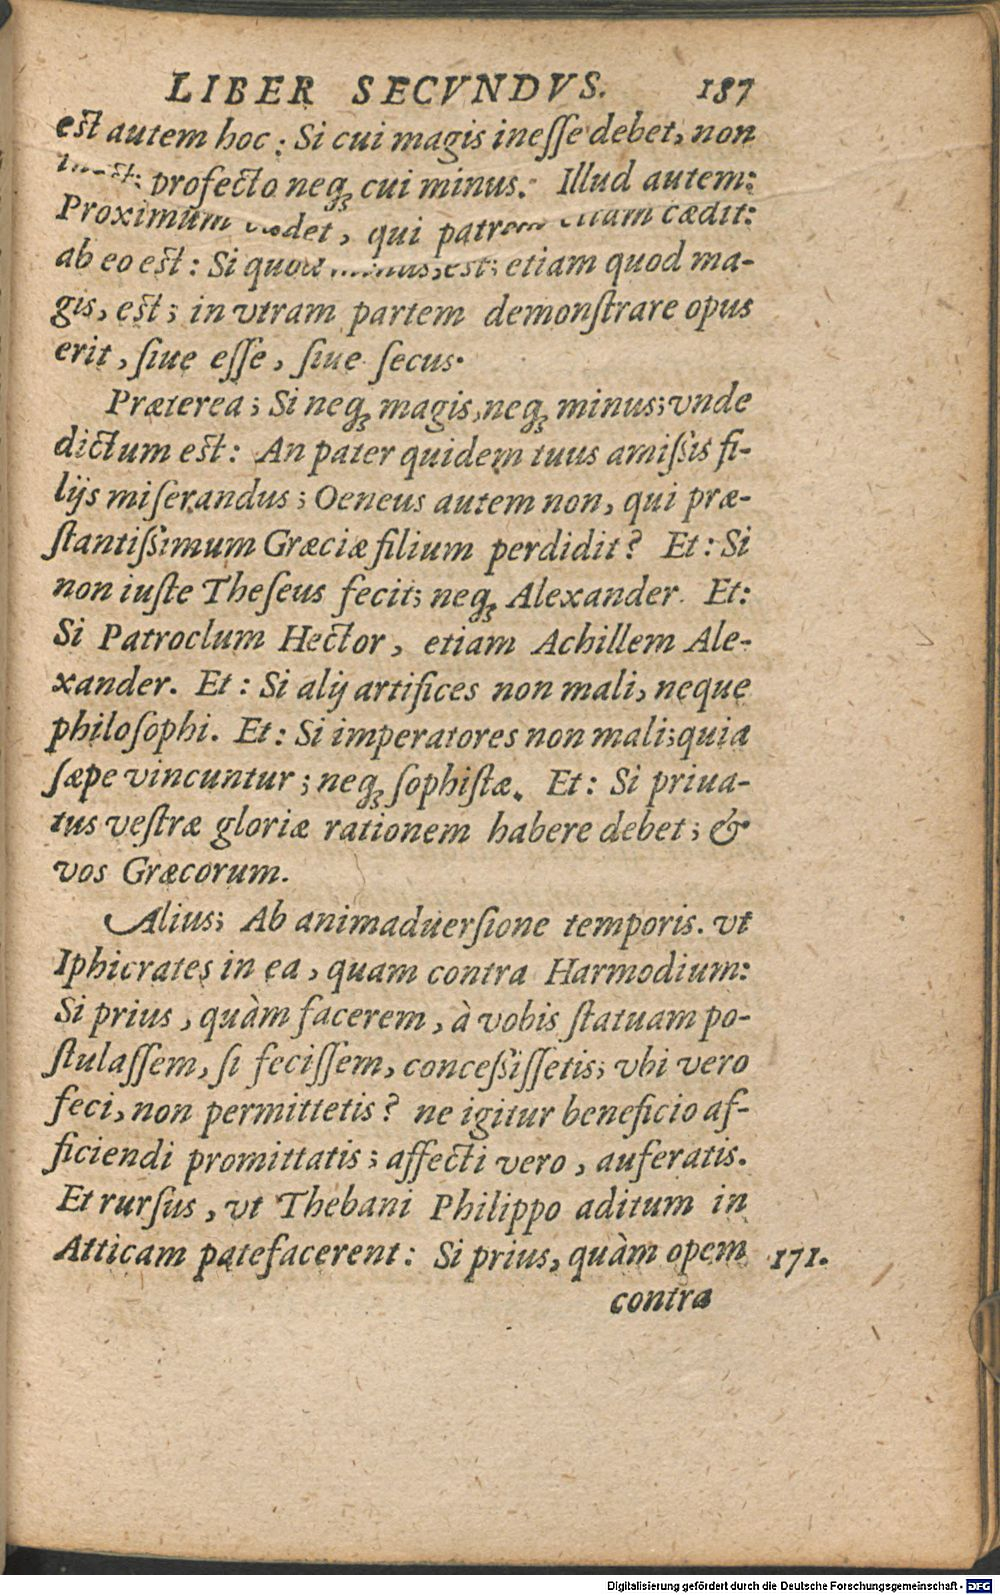 LIBER SECVNDVS. 187
est autem hoc: Si cui magis inesse debet, non
profecto neq; cui minus. Illud autem:
Proximum qui cædit:
ab eo est: Si quod est; etiam quod ma-
gis, est; in vtram partem demonſtrare opus
erit, ſiue eſſe, ſiue ſecus.
Præterea; Si neq; magis, neq; minus; vnde
dictum est: An pater quidem tuus amiſsis fi-
lijs miſerandus; Oeneus autem non, qui præ-
ſtantiſsimum Græciæ filium perdidit? Et: Si
non iuſte Theſeus fecit; neq; Alexander. Et:
Si Patroclum Hector, etiam Achillem Ale-
xander. Et: Si alij artifices non mali, neque
philoſophi. Et: Si imperatores non mali; quia
ſæpe vincuntur; neq; ſophiſtæ. Et: Si priua-
tus veſtræ gloriæ rationem habere debet; &
vos Græcorum.
Alius; Ab animaduerſione temporis. vt
Iphicrates in ea, quam contra Harmodium:
Si prius, quàm facerem, à vobis ſtatuam po-
ſtulaſſem, ſi feciſſem, conceſsiſſetis; vbi vero
feci, non permittetis? ne igitur beneficio af-
ficiendi promittatis; affecti vero, auferatis.
Et rurſus, vt Thebani Philippo aditum in
Atticam patefacerent: Si prius, quàm opem 171.
contra
Digitalisierung gefördert durch die Deutsche Forschungsgemeinschaft - DFG